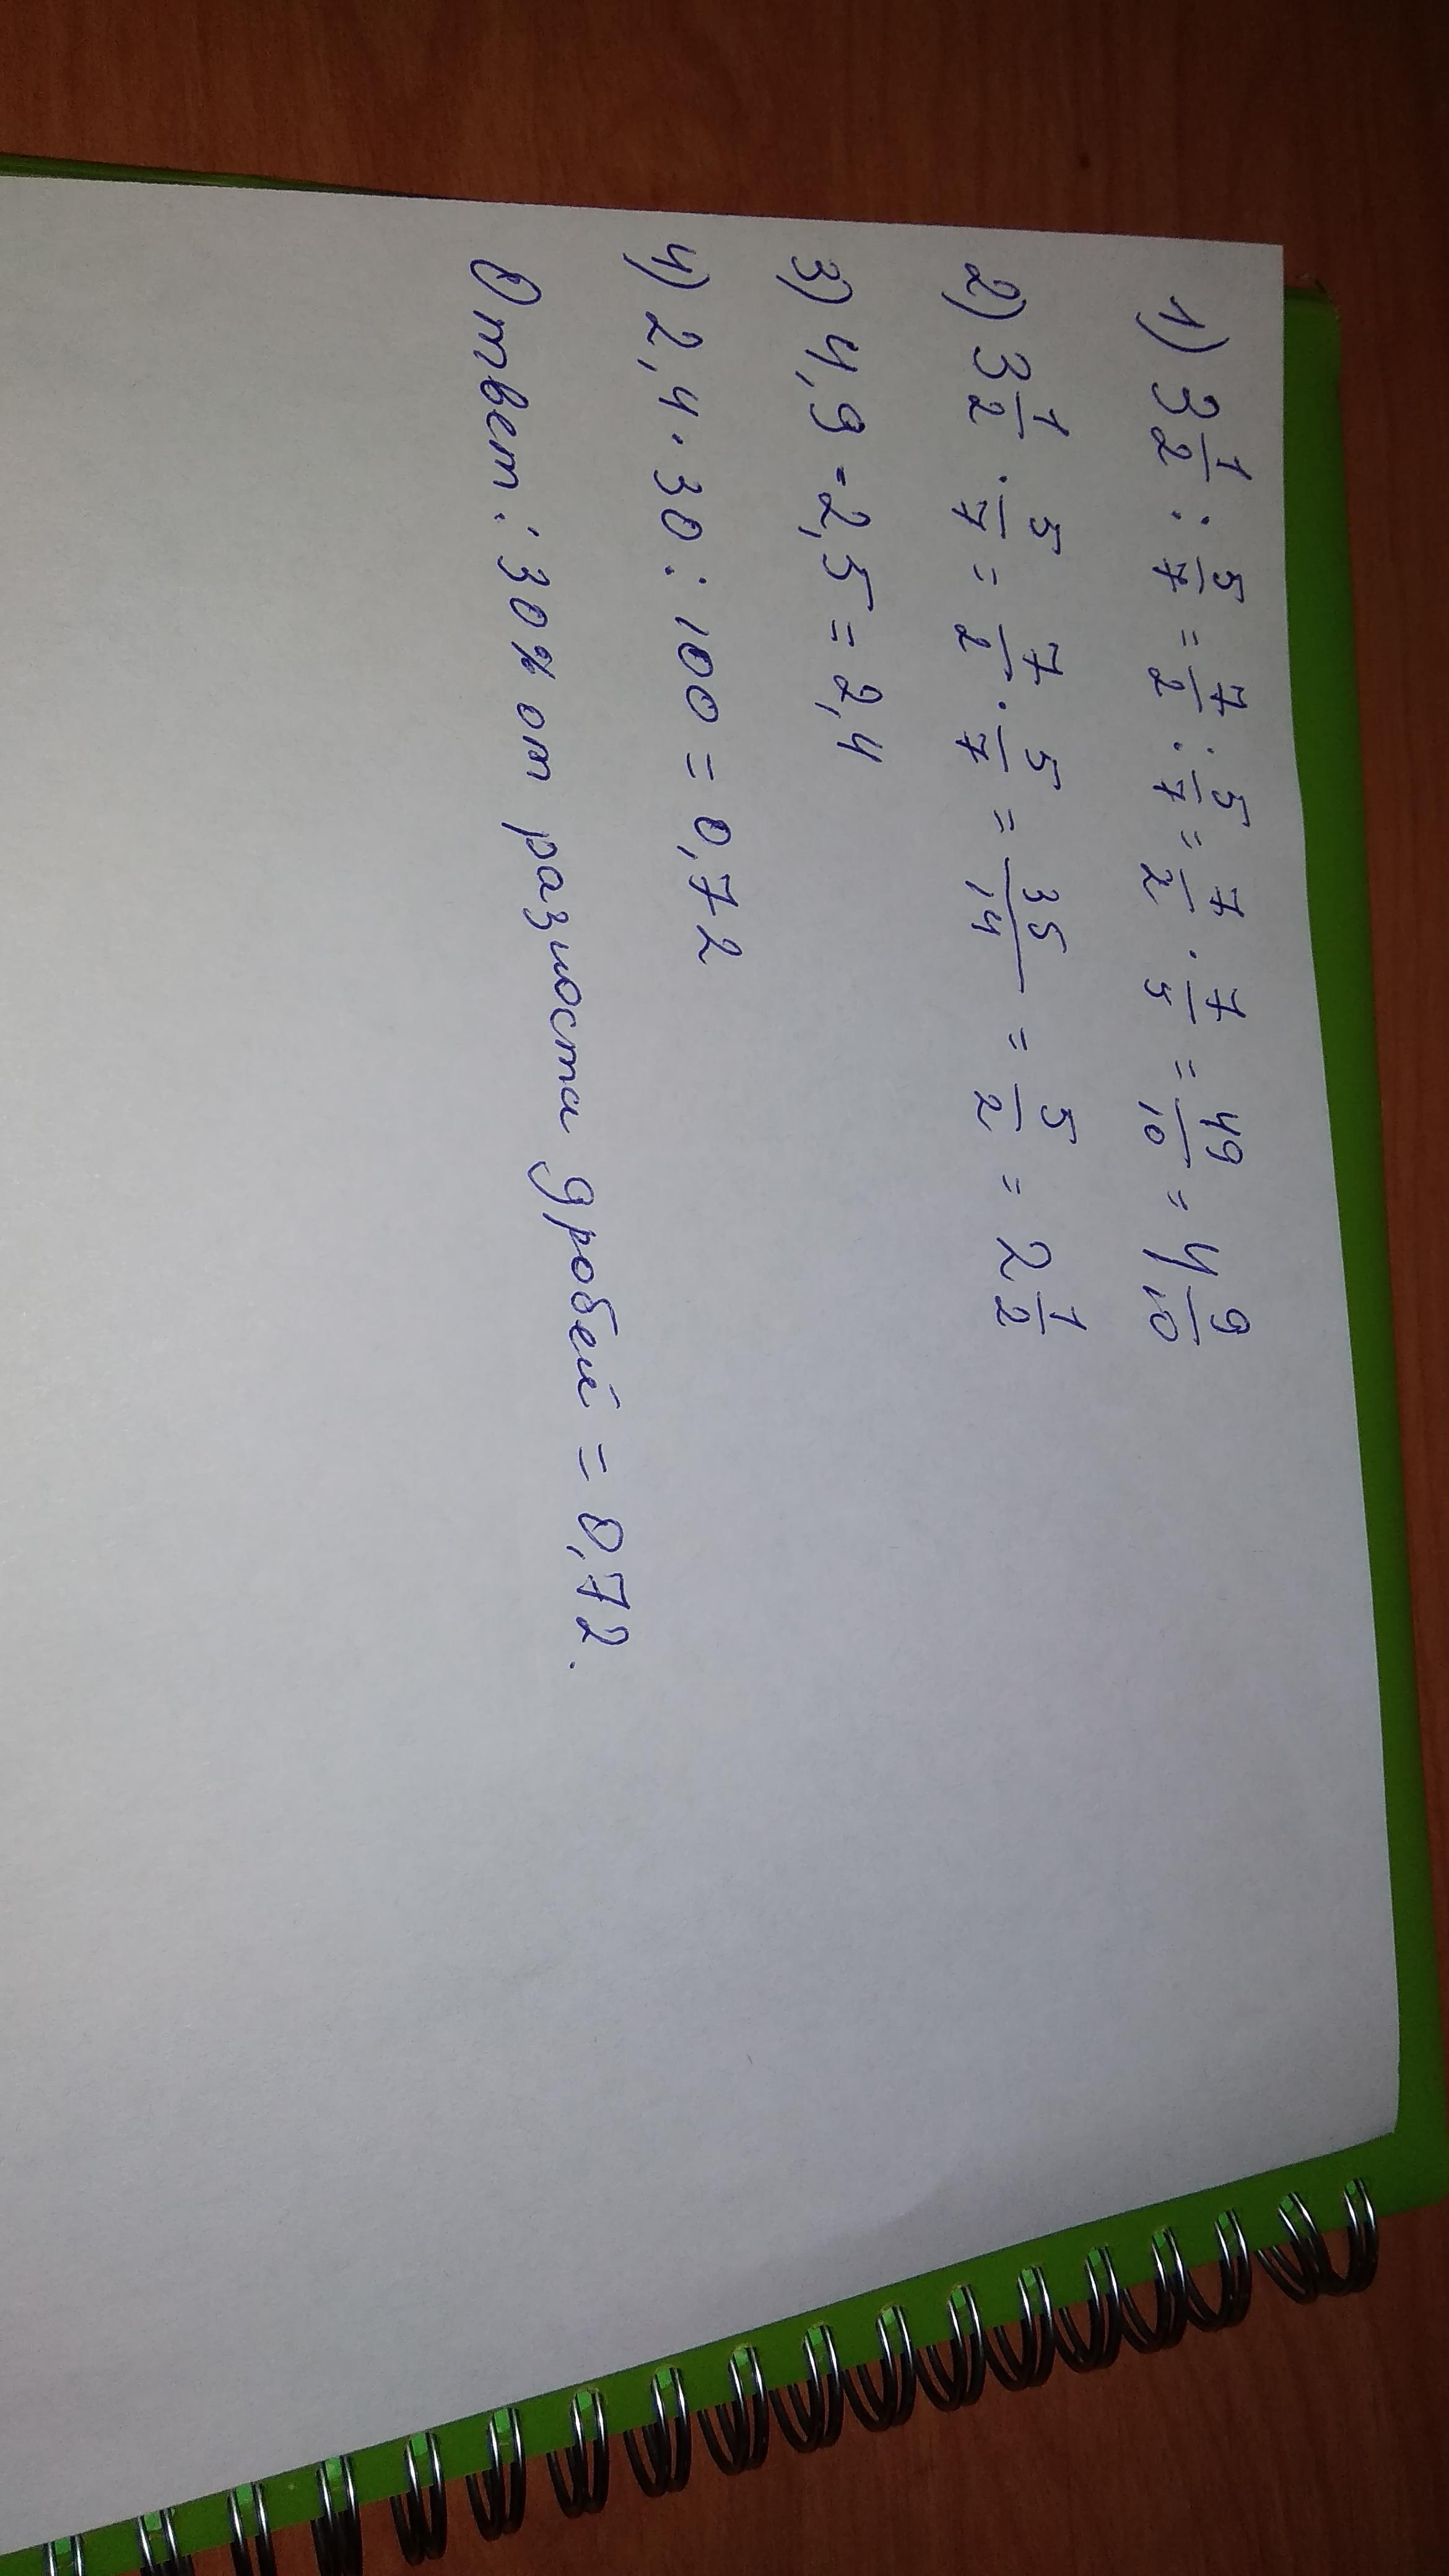 1) 3 1/2 : 5/7 = 7/2 : 5/7 = 7/2 · 7/5 = 49/10 = 4 9/10
2) 3 1/2 · 5/7 = 7/2 · 5/7 = 35/14 = 5/2 = 2 1/2
3) 4,9 - 2,5 = 2,4
4) 2,4 · 30 : 100 = 0,72
Ответ: 30% от разности дробей = 0,72.